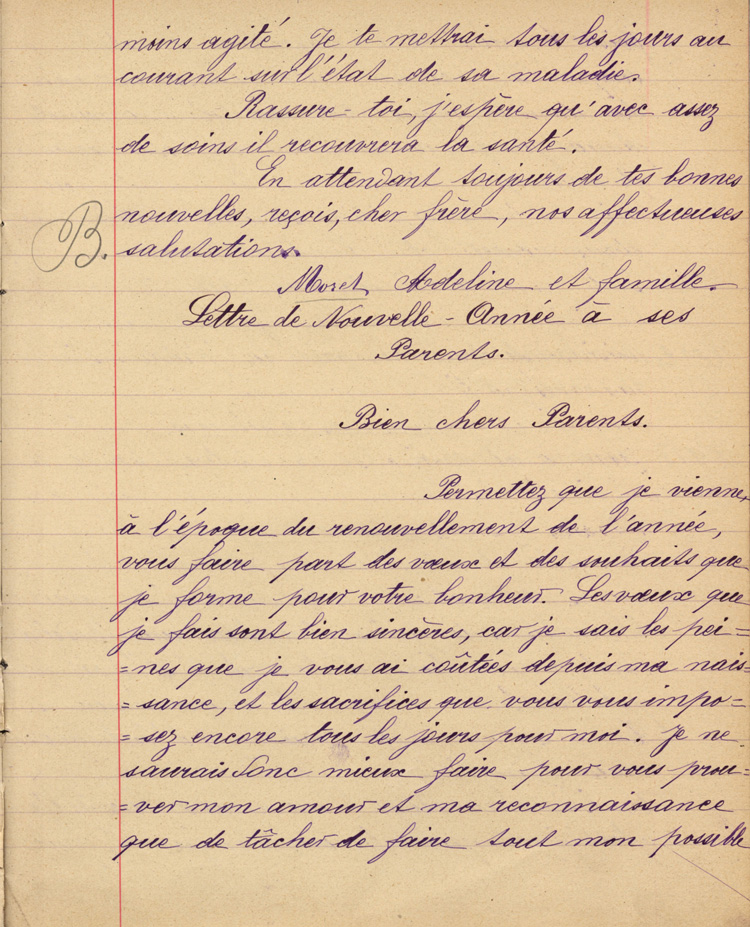 moins agité. Je te mettrai tous les jours au
courant sur l'état de sa maladie.
Rassure-toi, j'espère qu'avec assez
de soins il recouvrera la santé.
En attendant toujours de tes bonnes
nouvelles, reçois, cher frère, nos affectueuses
B. salutations.
Moret Adeline et famille.
Lettre de Nouvelle-Année à ses
Parents.
Bien chers Parents.
Permettez que je vienne,
à l'époque du renouvellement de l'année,
vous faire part des vœux et des souhaits que
je forme pour votre bonheur. Les vœux que
je fais sont bien sincères, car je sais les pei=
=nes que je vous ai coûtées depuis ma nais=
=sance, et les sacrifices que vous vous impo=
=sez encore tous les jours pour moi. Je ne
saurais donc mieux faire pour vous prou=
=ver mon amour et ma reconnaissance
que de tâcher de faire tout mon possible